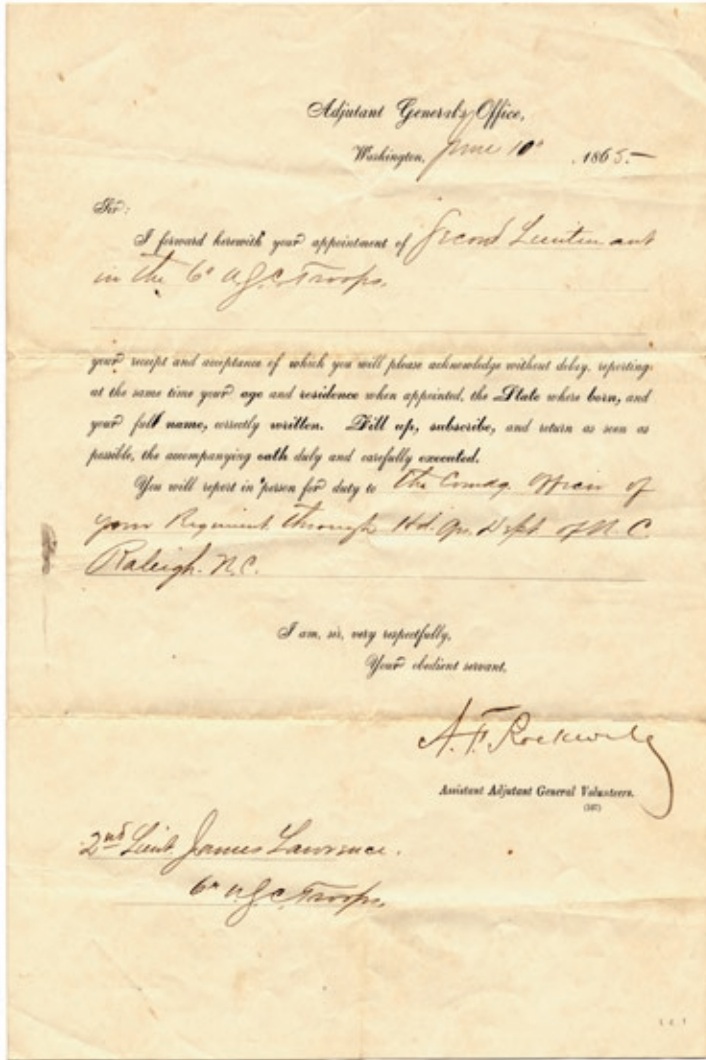 Adjutant General's Office,
Washington, June 10th, 1865.
Sir:
I forward herewith your appointment of Second Lieutenant
in the 6th U.S.C. Troops.
your receipt and acceptance of which you will please acknowledge without delay, reporting
at the same time your age and residence when appointed, the State where born, and
your full name, correctly written. Fill up, subscribe, and return as soon as
possible, the accompanying oath duly and carefully executed.
You will report in person for duty to the Comdg. Officer of
your Regiment through Hd. Qrs. Dept. of N. C.
Raleigh. N.C.
I am, sir, very respectfully,
Your obedient servant,
A. F. Rockwell
Assistant Adjutant General Volunteers.
2nd Lieut. James Lawrence.
6th U.S.C. Troops,